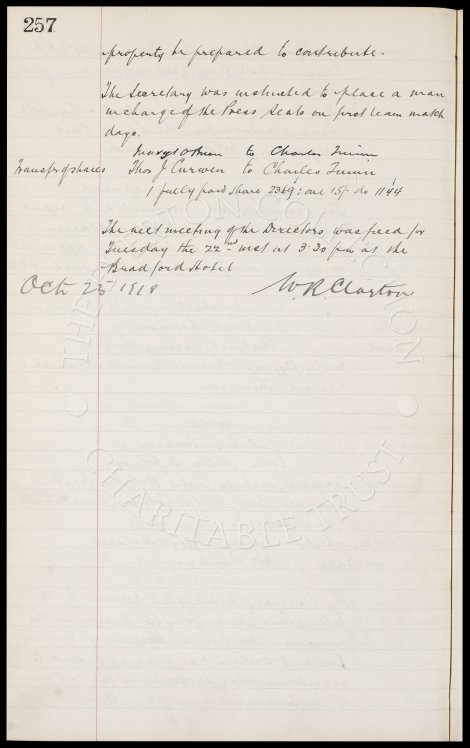 257
property be prepared to contribute.
The Secretary was instructed to place a man
in charge of the Press Seats on first team match
days.
to Charles
Transfer of shares Thos J. Curwen to Charles
1 fully paid share 2369; one 15/- do 1144
The next meeting of the Directors was fixed for
Tuesday the 22nd inst at 3.30 pm at the
Bradford Hotel
Oct 25 1919 W.R. Clayton
THE EVERTON COLLECTION
CHARITABLE TRUST